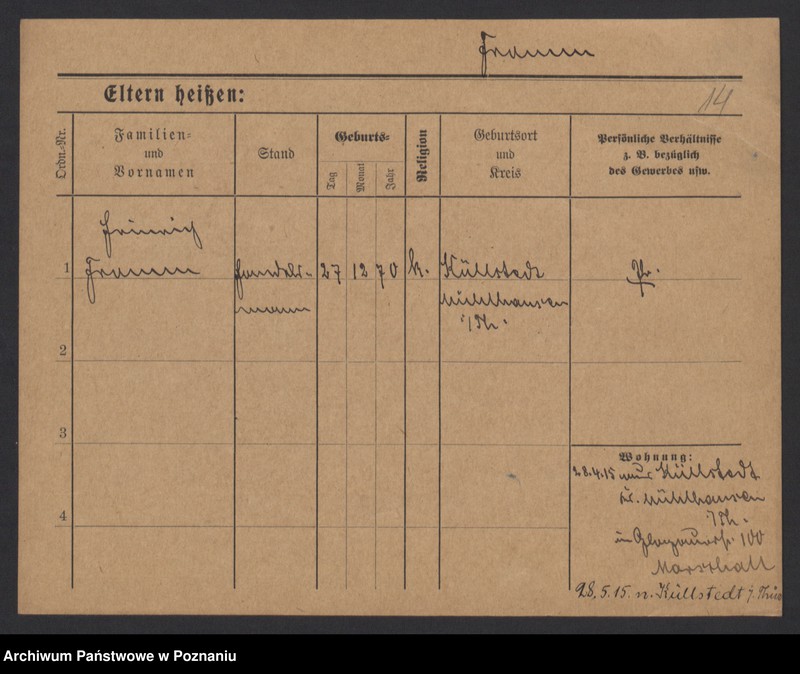 Framm
Eltern heißen:
14
Ordn.-Nr.
Familien-
und
Vornamen
Stand
Geburts-
Tag
Monat
Jahr
Religion
Geburtsort
und
Kreis
Persönliche Verhältnisse
z. B. bezüglich
des Gewerbes usw.
Heinrich
1 Framm Handels- 27 12 70 k. Küllstedt Pr.
mann Mühlhausen
i/Th.
2
3
Wohnung:
28.4.15 Küllstedt
Kr. Mühlhausen
i/Th.
4
in Glogauerstr. 100
28.5.15. n. Küllstedt i. Thür
Archiwum Państwowe w Poznaniu